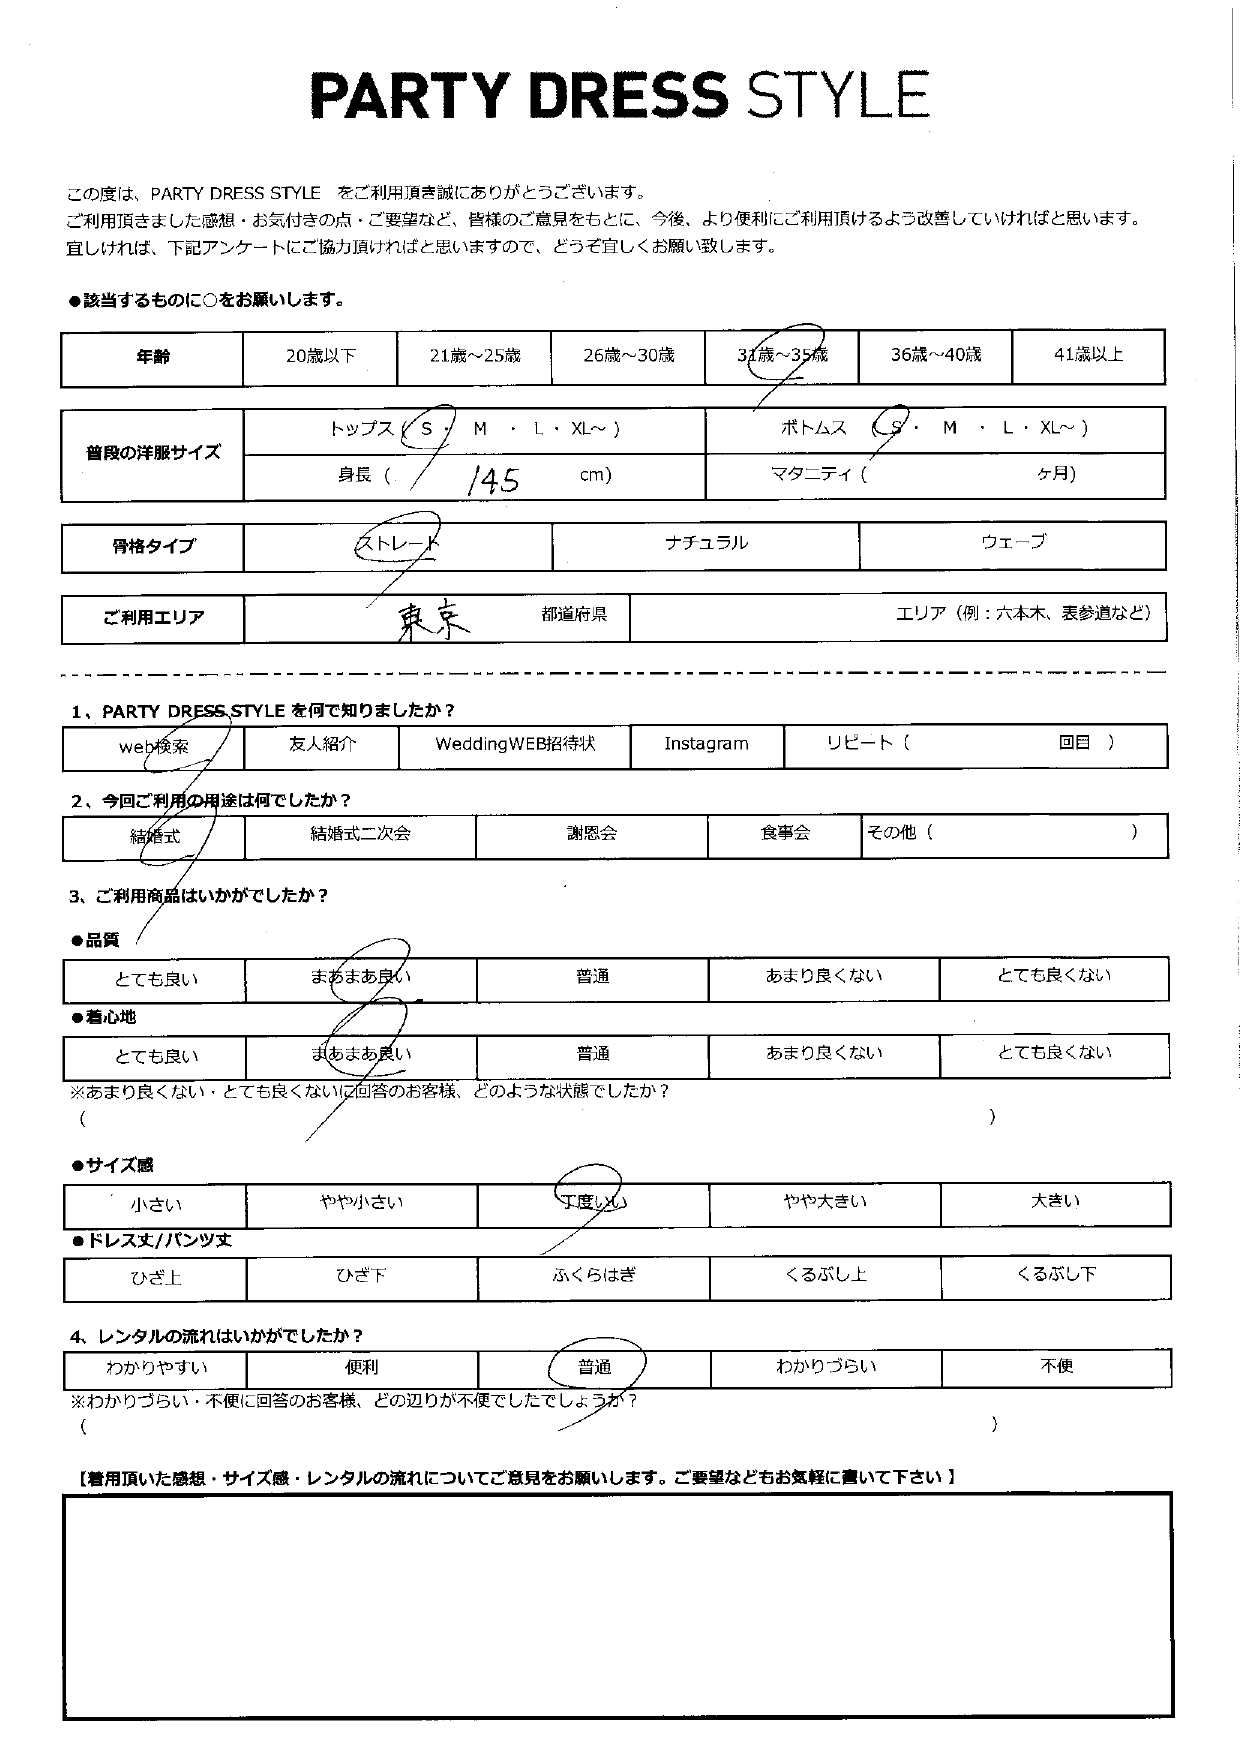 PARTY DRESS STYLE
この度は、PARTY DRESS STYLE　をご利用頂き誠にありがとうございます。
ご利用頂きました感想・お気付きの点・ご要望など、皆様のご意見をもとに、今後、より便利にご利用頂けるよう改善していければと思います。
宜しければ、下記アンケートにご協力頂ければと思いますので、どうぞ宜しくお願い致します。
●該当するものに○をお願いします。
年齢 20歳以下 21歳～25歳 26歳～30歳 31歳～35歳 36歳～40歳 41歳以上
普段の洋服サイズ
トップス ( S ・ M ・ L ・ XL～ ) ボトムス ( S ・ M ・ L ・ XL～ )
身長 ( 145 cm) マタニティ ( ヶ月)
骨格タイプ ストレート ナチュラル ウェーブ
ご利用エリア 東京 都道府県 エリア（例：六本木、表参道など）
1、PARTY DRESS STYLE を何で知りましたか？
web検索 友人紹介 WeddingWEB招待状 Instagram リピート ( 回目 )
2、今回ご利用の用途は何でしたか？
結婚式 結婚式二次会 謝恩会 食事会 その他 ( )
3、ご利用商品はいかがでしたか？
●品質
とても良い まあまあ良い 普通 あまり良くない とても良くない
●着心地
とても良い まあまあ良い 普通 あまり良くない とても良くない
※あまり良くない・とても良くないに回答のお客様、どのような状態でしたか？
( )
●サイズ感
小さい やや小さい 丁度いい やや大きい 大きい
●ドレス丈/パンツ丈
ひざ上 ひざ下 ふくらはぎ くるぶし上 くるぶし下
4、レンタルの流れはいかがでしたか？
わかりやすい 便利 普通 わかりづらい 不便
※わかりづらい・不便に回答のお客様、どの辺りが不便でしたでしょうか？
( )
【着用頂いた感想・サイズ感・レンタルの流れについてご意見をお願いします。ご要望などもお気軽に書いて下さい】